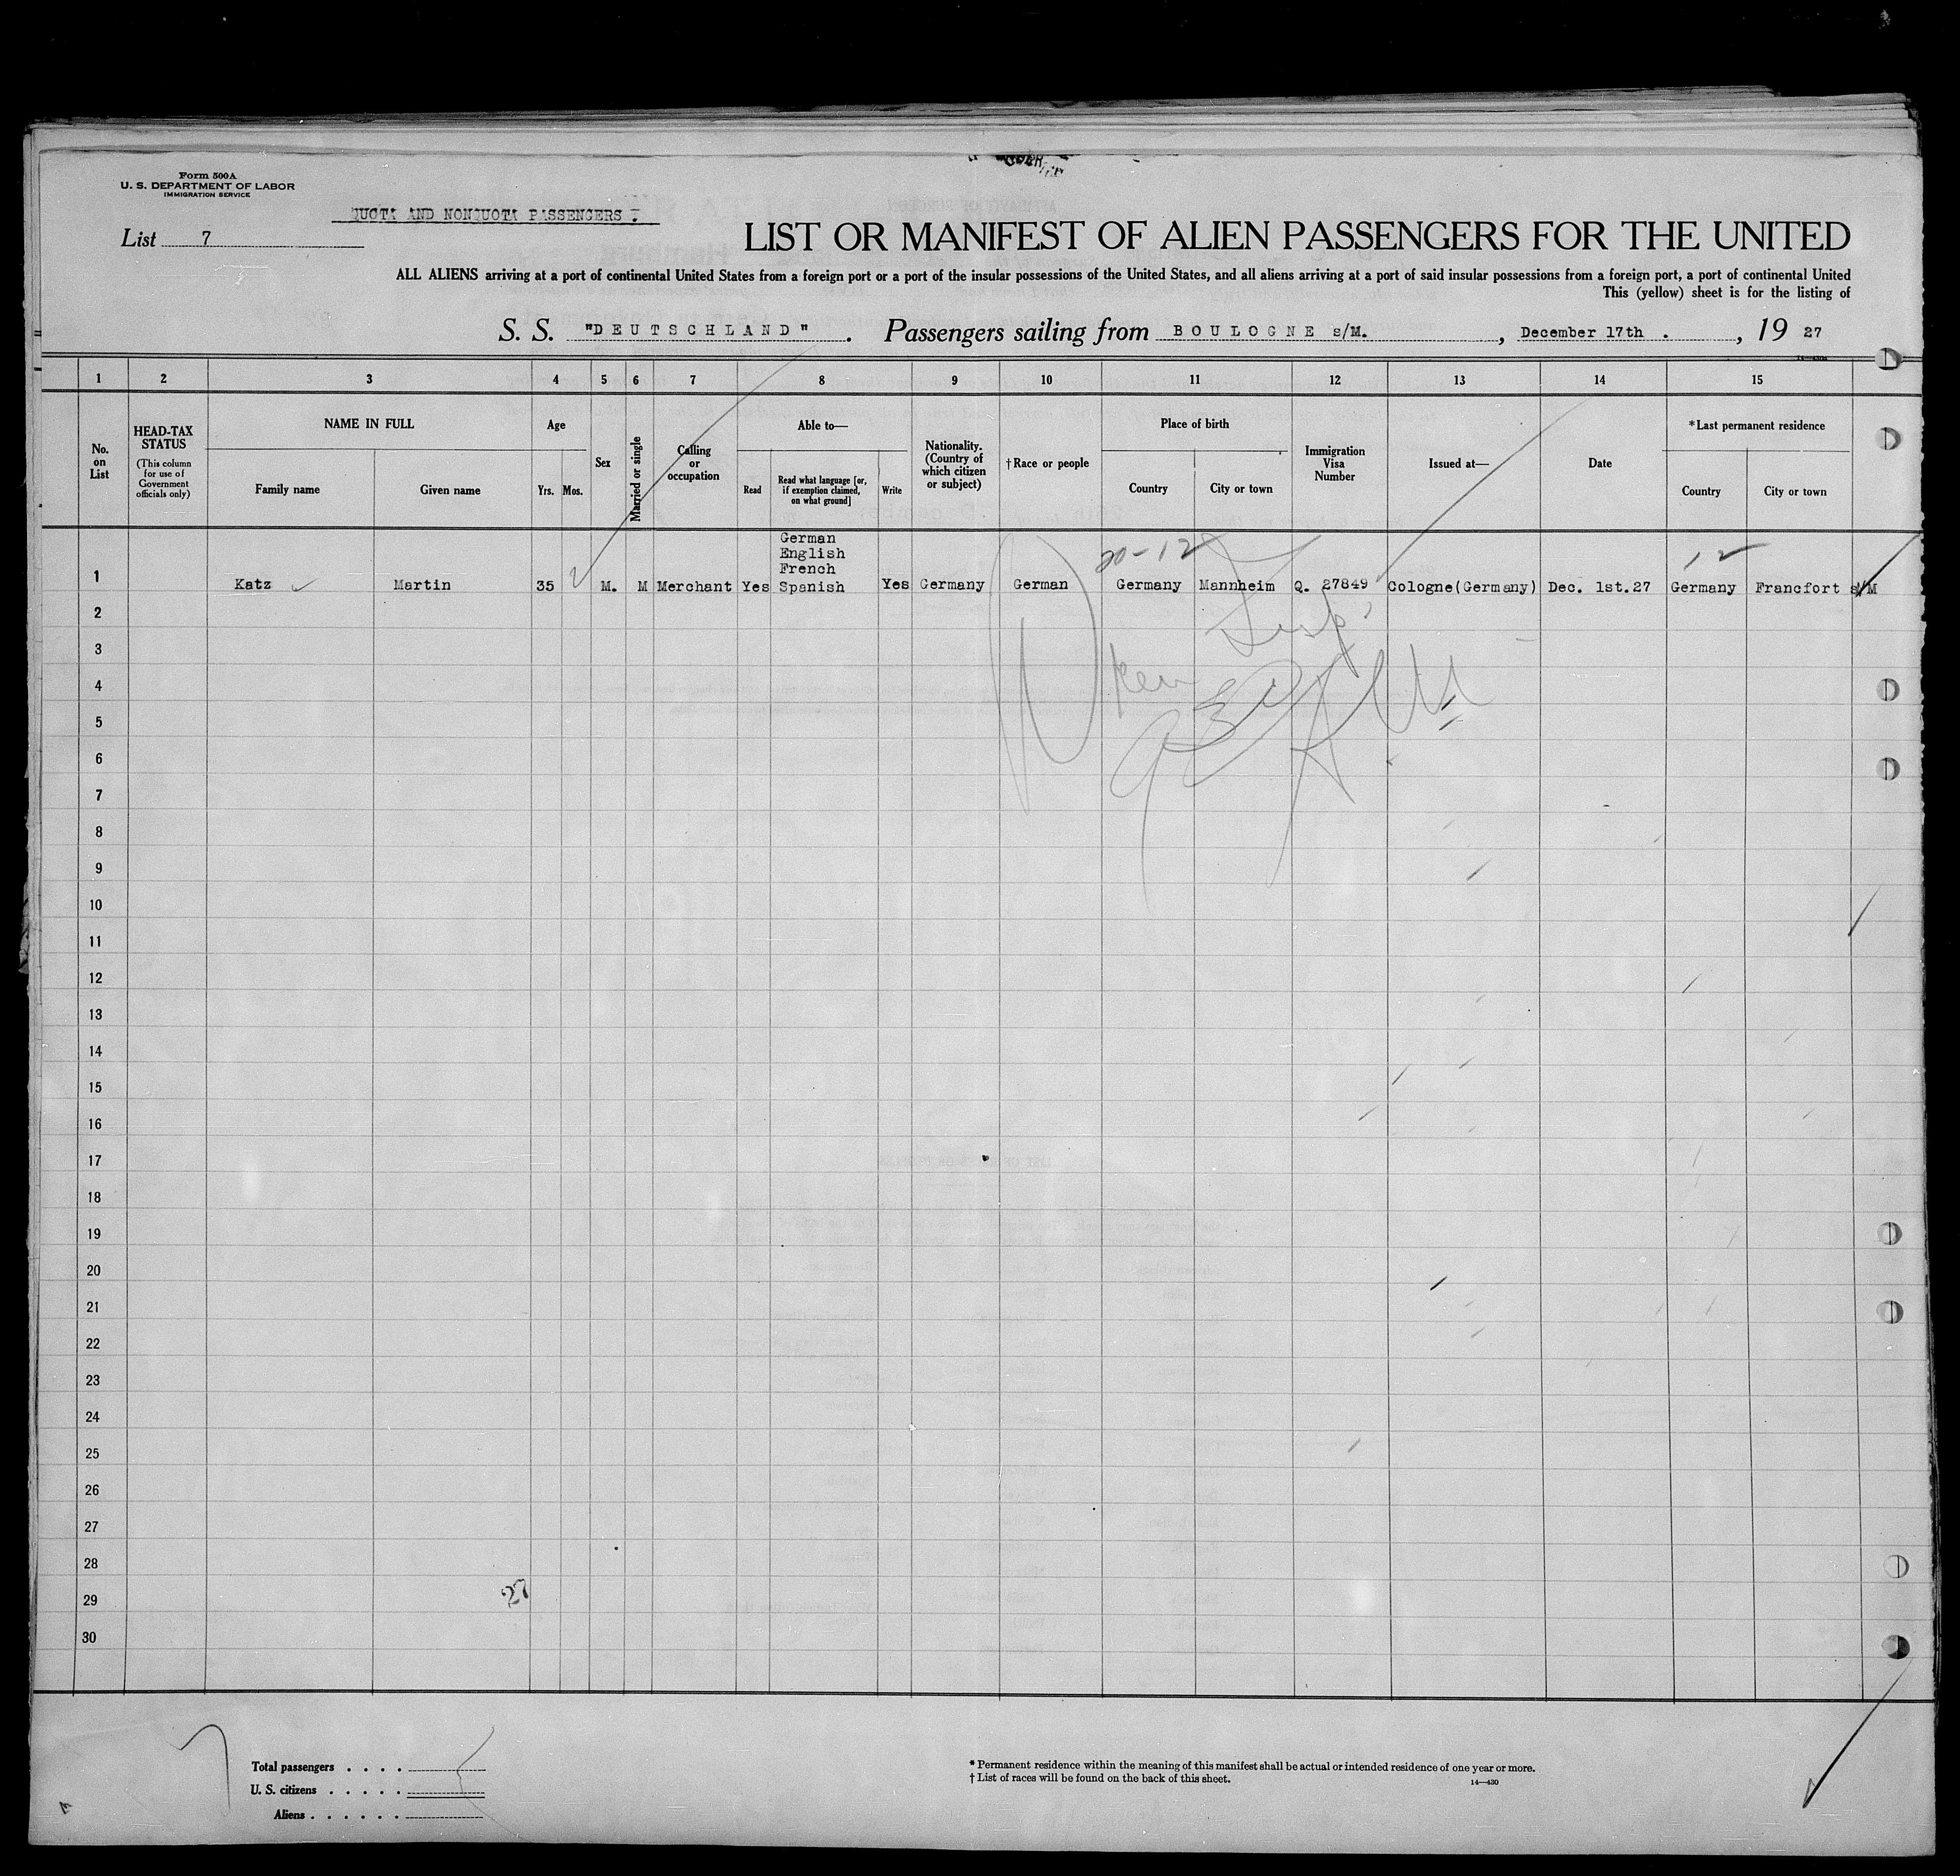 Form 500A
U. S. DEPARTMENT OF LABOR
IMMIGRATION SERVICE
QUOTA AND NONQUOTA PASSENGERS .
List 7
LIST OR MANIFEST OF ALIEN PASSENGERS FOR THE UNITED
ALL ALIENS arriving at a port of continental United States from a foreign port or a port of the insular possessions of the United States, and all aliens arriving at a port of said insular possessions from a foreign port, a port of continental United
This (yellow) sheet is for the listing of
S. S. "DEUTSCHLAND" . Passengers sailing from BOULOGNE s/M. , December 17th . , 19 27
1 2 3 4 5 6 7 8 9 10 11 12 13 14 15
No. on List
HEAD-TAX STATUS
(This column for use of Government officials only)
NAME IN FULL
Family name
Given name
Age
Yrs. Mos.
Sex
Married or single
Calling or occupation
Able to—
Read
Read what language [or, if exemption claimed, on what ground]
Write
Nationality. (Country of which citizen or subject)
† Race or people
Place of birth
Country
City or town
Immigration Visa Number
Issued at—
Date
* Last permanent residence
Country
City or town
20-12
12
German
English
French
1 Katz Martin 35 M. M Merchant Yes Spanish Yes Germany German Germany Mannheim Q. 27849 Cologne(Germany) Dec. 1st.27 Germany Francfort s/M
2
3
4
5
6
7
8
9
10
11
12
13
14
15
16
17
18
19
20
21
22
23
24
25
26
27
28
27
29
30
Total passengers . . . .
U. S. citizens . . . . .
Aliens . . . . . .
* Permanent residence within the meaning of this manifest shall be actual or intended residence of one year or more.
† List of races will be found on the back of this sheet.
14—430